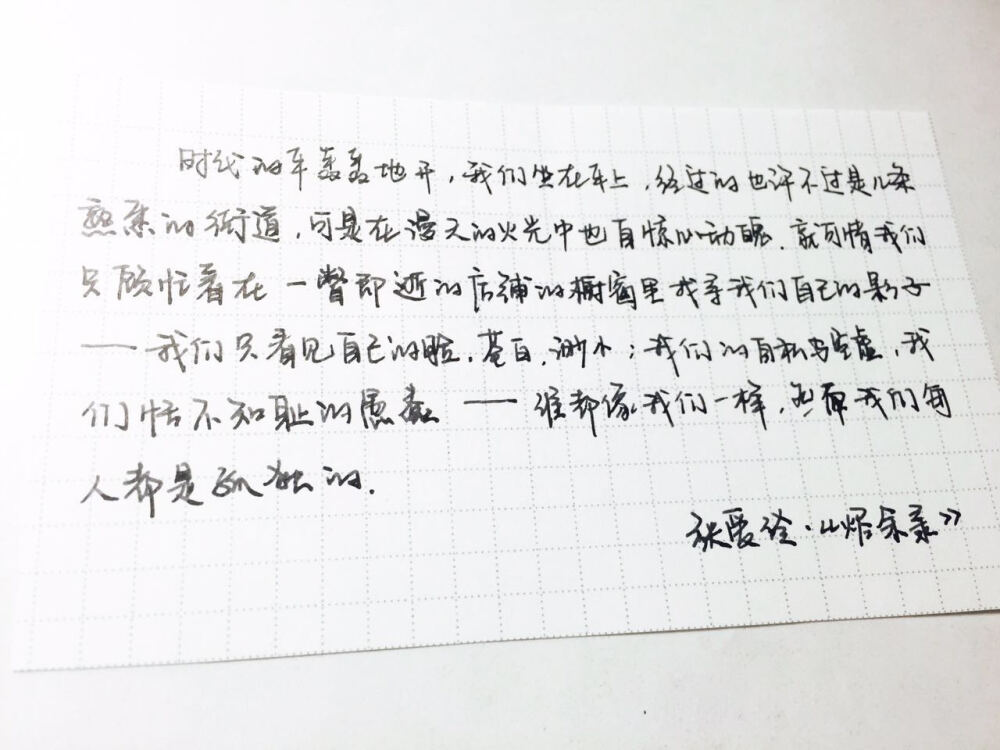 时代的车轰轰地开，我们坐在车上，经过的也许不过是几条
熟悉的街道，可是在漫天的火光中也自惊心动魄．就可惜我们
只顾忙着在一瞥即逝的店铺的橱窗里找寻我们自己的影子
——我们只看见自己的脸，苍白，渺小；我们的自私与空虚，我
们恬不知耻的愚蠢——谁都像我们一样，然而我们每
人都是孤独的．
张爱玲·《烬余录》